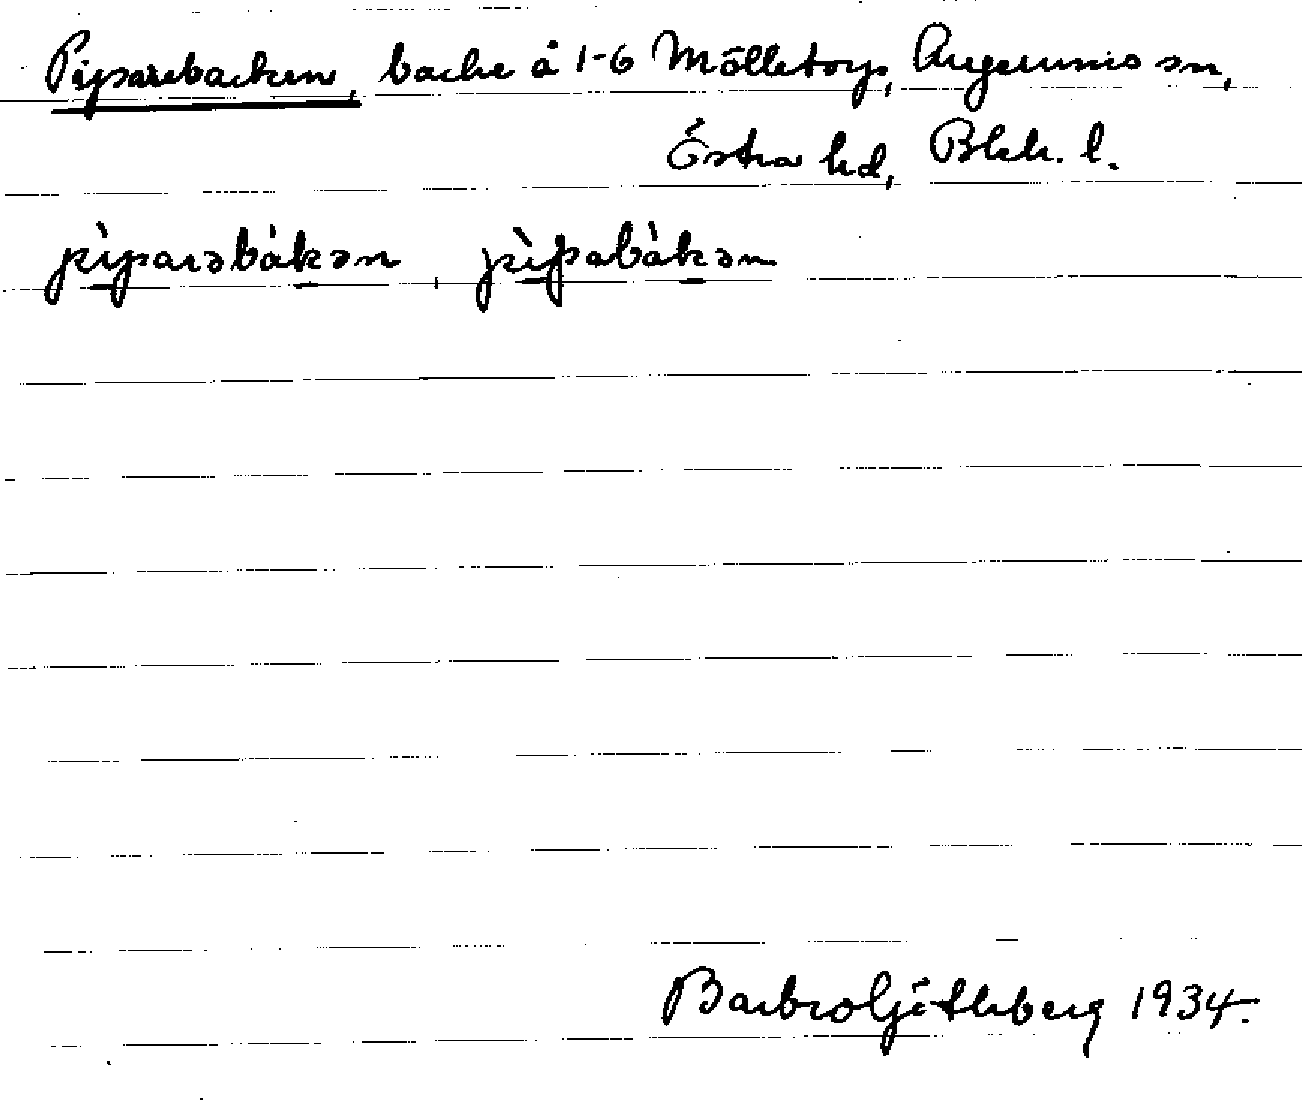 Piparebacken, backe å 1-6 Mölletorp, Augerums sn,
Östra hd, Blek. l.
pìparəbàkən, pìpabàkən
Barbro Götheberg 1934.